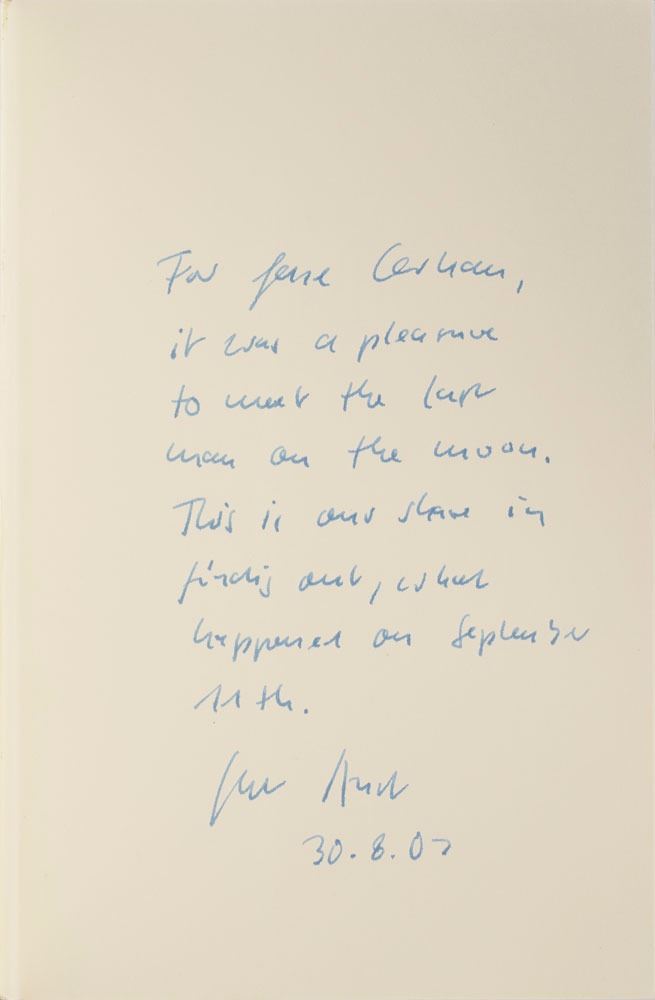 For Gene Cernan,
it was a pleasure
to meet the last
man on the moon.
This is our share in
finding out, what
happened on September
11th.
30.8.07